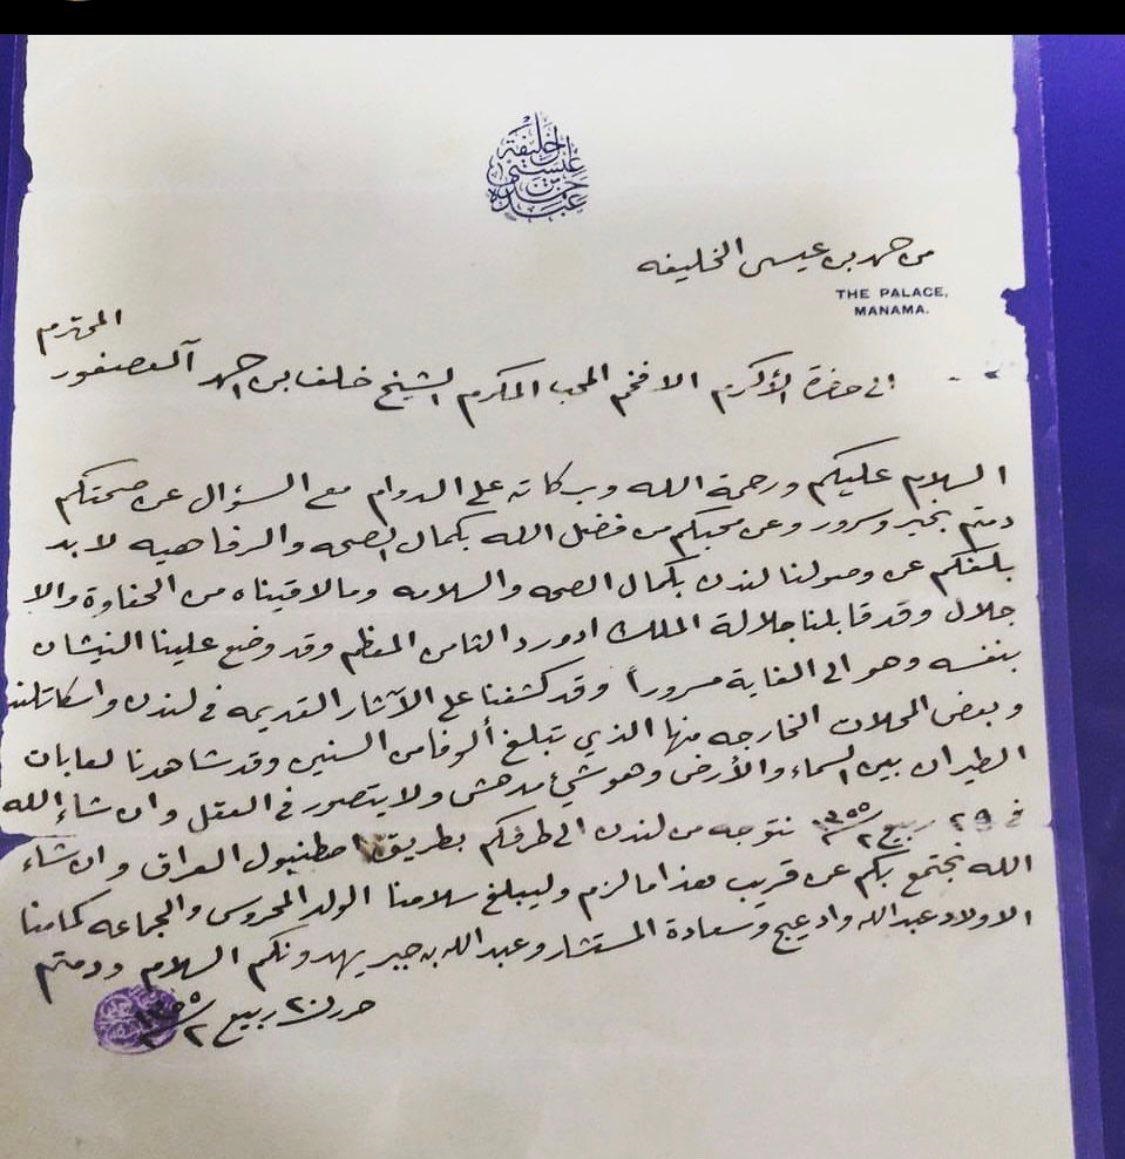 عبده
حمد بن
عيسى
آل خليفة
من حمد بن عيسى الخليفه
THE PALACE,
MANAMA.
المحترم
الى حضرة الأكرم الافخم المحب المكرم الشيخ خلف بن احمد آل عصفور
السلام عليكم ورحمة الله وبركاته على الدوام مع السؤال عن صحتكم
دمتم بخير وسرور وعن محبكم من فضل الله بكمال الصحه والرفاهيه لابد
بلغكم عن وصولنا لندن بكمال الصحه والسلامه ومالاقيناه من الحفاوة والا
جلال وقد قابلنا جلالة الملك ادورد الثامن المعظم وقد وضع علينا النيشان
بنفسه وهو الى الغاية مسروراً وقد كشفنا على الآثار القديمه في لندن واسكاتلند
وبعض المحلات الخارجه منها الذي تبلغ ألوفا من السنين وقد شاهدنا لعابات
الطيران بين السماء والأرض وهو شيئ مدهش ولا يتصور في العقل وان شاء الله
في ٢٩ ربيع ٢ ١٣٥٥ نتوجه من لندن الى طرفكم بطريق اصطنبول العراق وان شاء
الله نجتمع بكم عن قريب هذا مالزم وليبلغ سلامنا الولد المحروس والجماعه كمامنا
الاولاد عبدالله وادعيج وسعادة المستشار وعبدالله بن جبر يهدونكم السلام ودمتم
حرر في ٢٠ ربيع ٢ ١٣٥٥